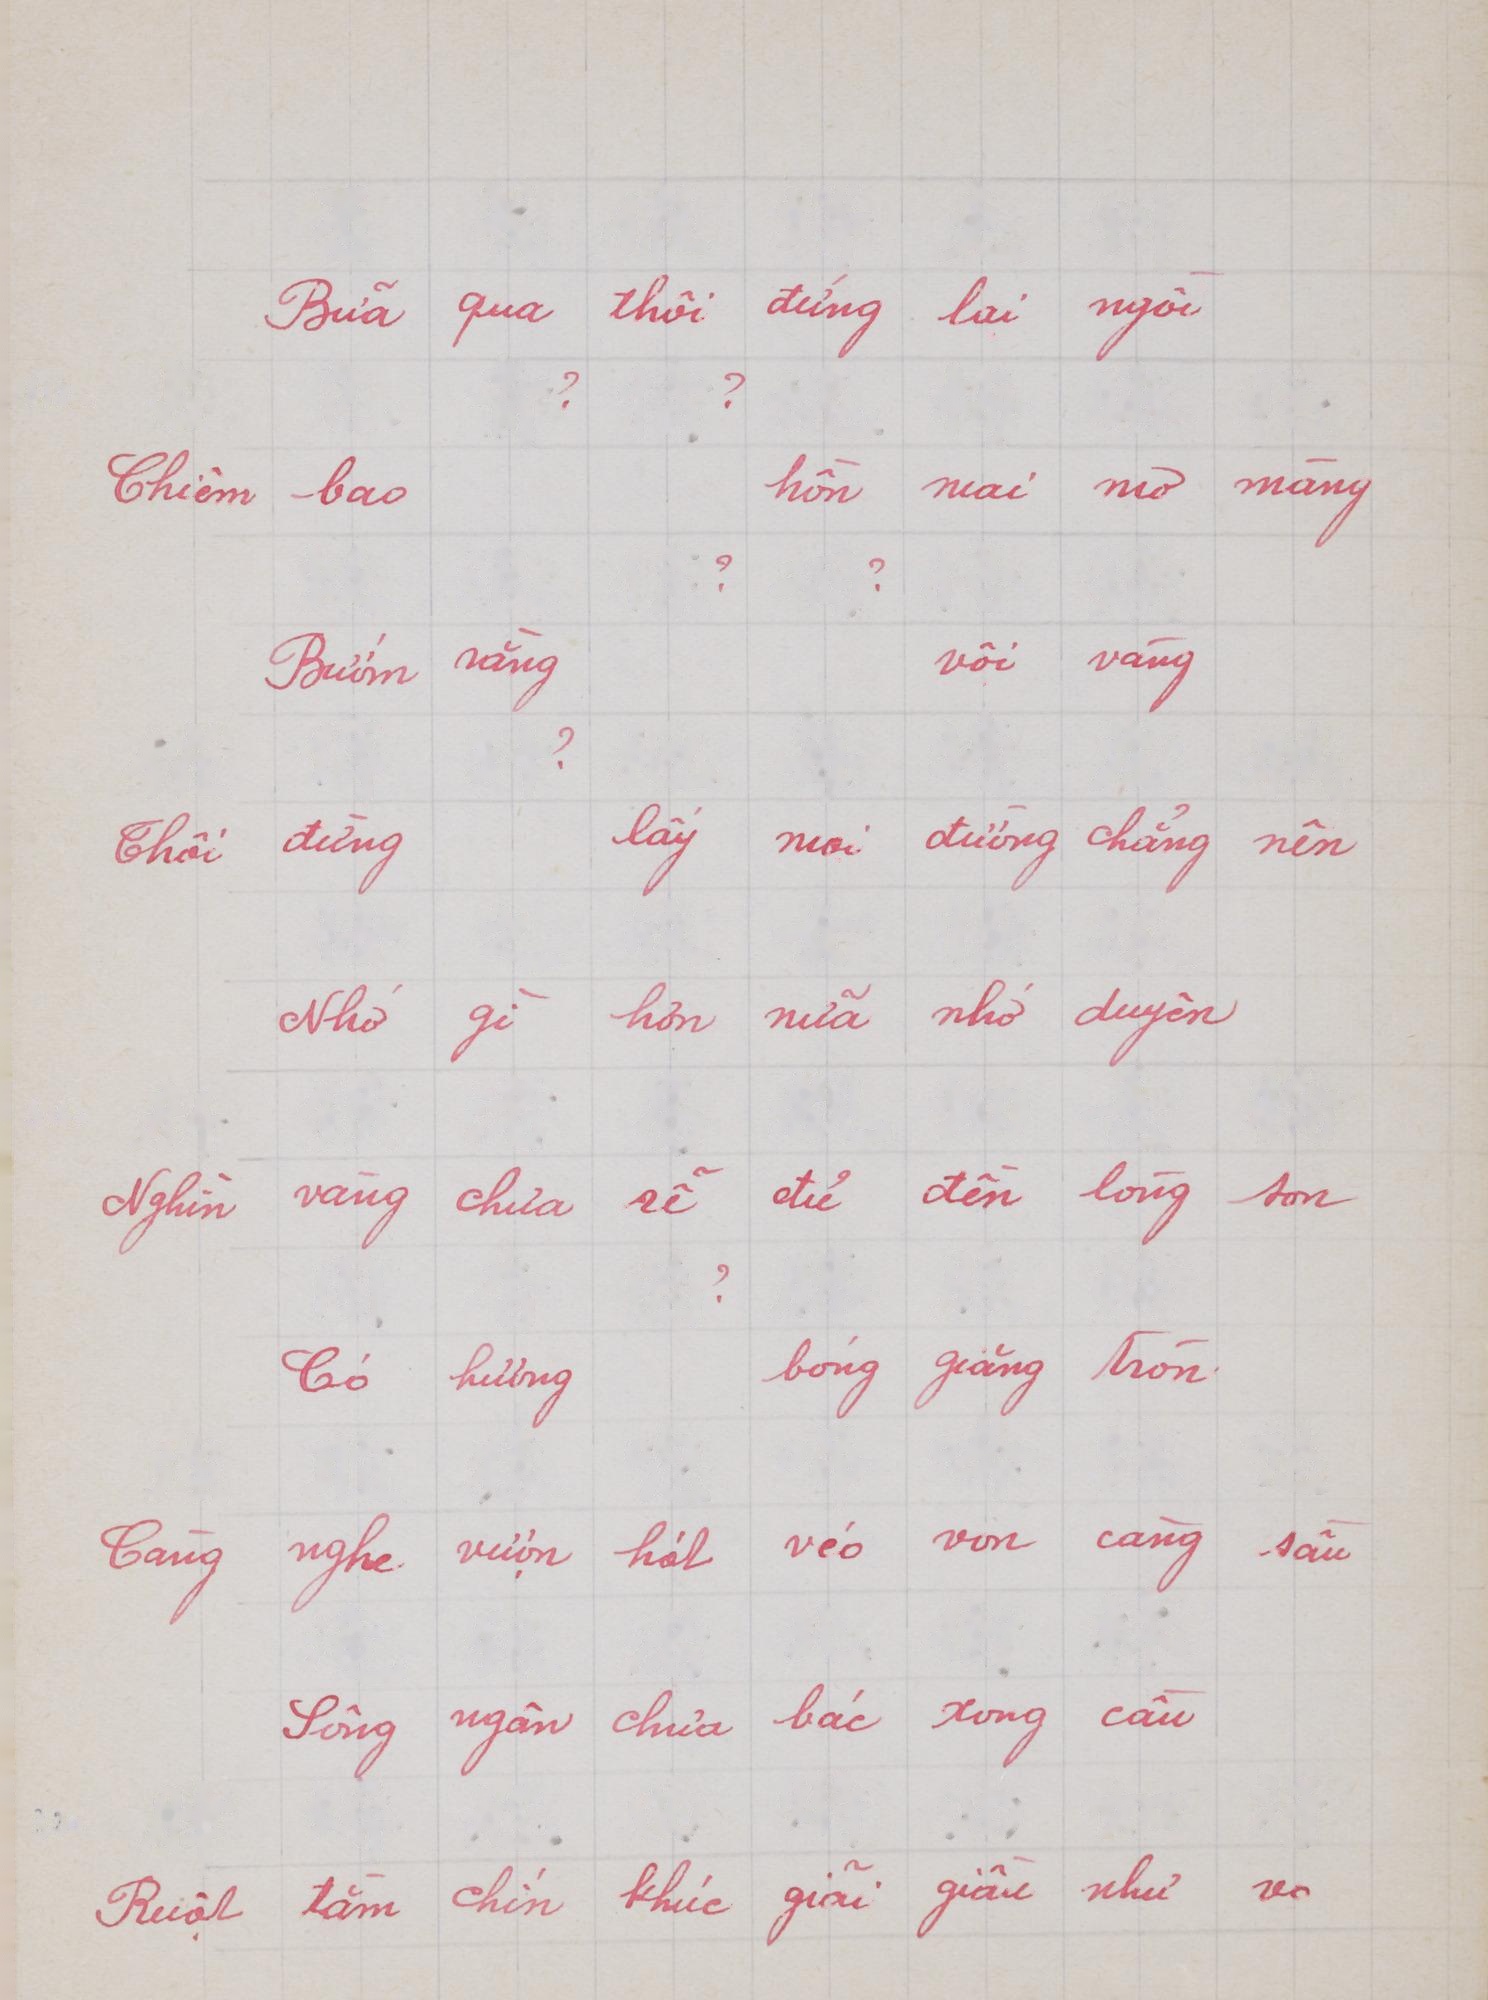 Bữa qua thôi đứng lại ngồi
? ?
Chiêm bao hồn mai mơ màng
? ?
Bướm rằng vội vàng
?
Thôi đừng lấy mọi đường chẳng nên
Nhớ gì hơn nữa nhớ duyên
Nghìn vàng chưa rễ đủ đền lòng son
?
Có hương bóng giăng tròn
Càng nghe vượn hót véo von càng sầu
Sông ngân chưa bắc xong cầu
Ruột tằm chín khúc giãi giầu như vo